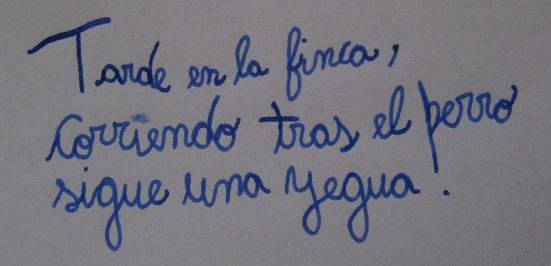 Tarde en la finca,
corriendo tras el perro
sigue una yegua.